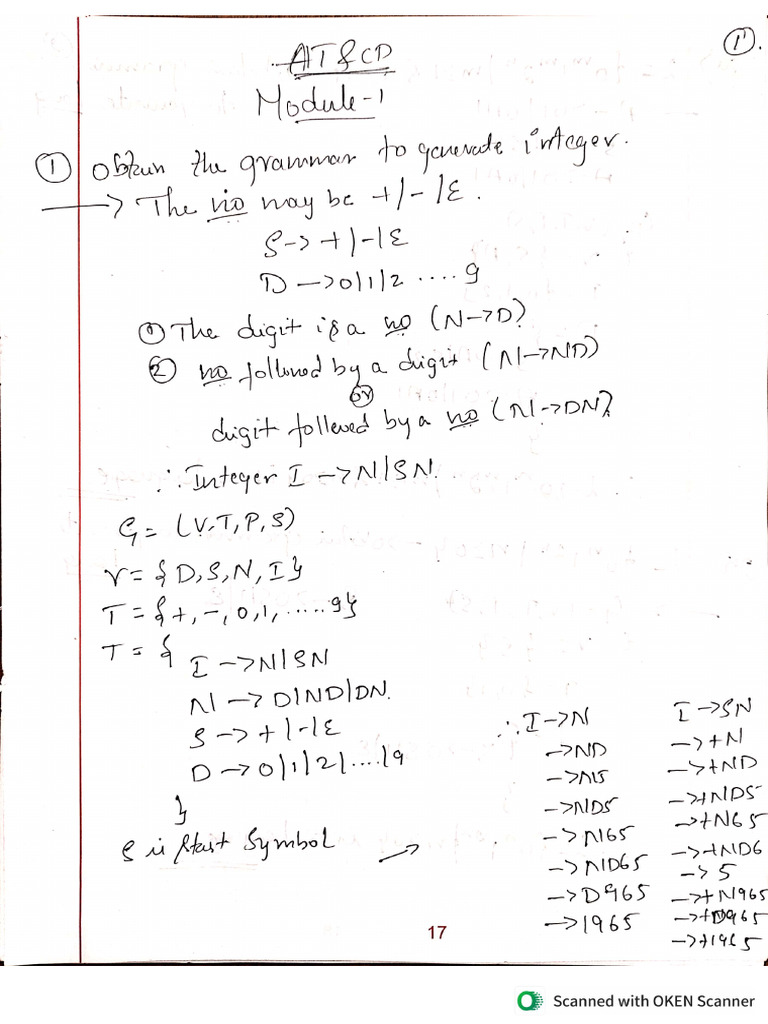 1
AT&CD
Module-1
① obtain the grammar to generate integer.
→ The no may be +/-/ε.
S → +/-/ε
D → 0/1/2 .... 9
① The digit is a no (N→D)
② no followed by a digit (N→ND)
or
digit followed by a no (N→DN)
∴ Integer I → N/SN.
G = (V,T,P,S)
V = {D, S, N, I}
T = {+, -, 0, 1, ..... 9}
T = { I → N/SN
N → D/ND/DN.
S → +/-/ε
D → 0/1/2/..../9
}
S is start symbol →
∴ I → N
→ ND
→ N5
→ ND5
→ N65
→ ND65
→ D965
→ 1965
I → SN
→ +N
→ +ND
→ +ND5
→ +N65
→ +ND6
→ 5
→ +N965
→ +D965
→ +1965
17
Scanned with OKEN Scanner